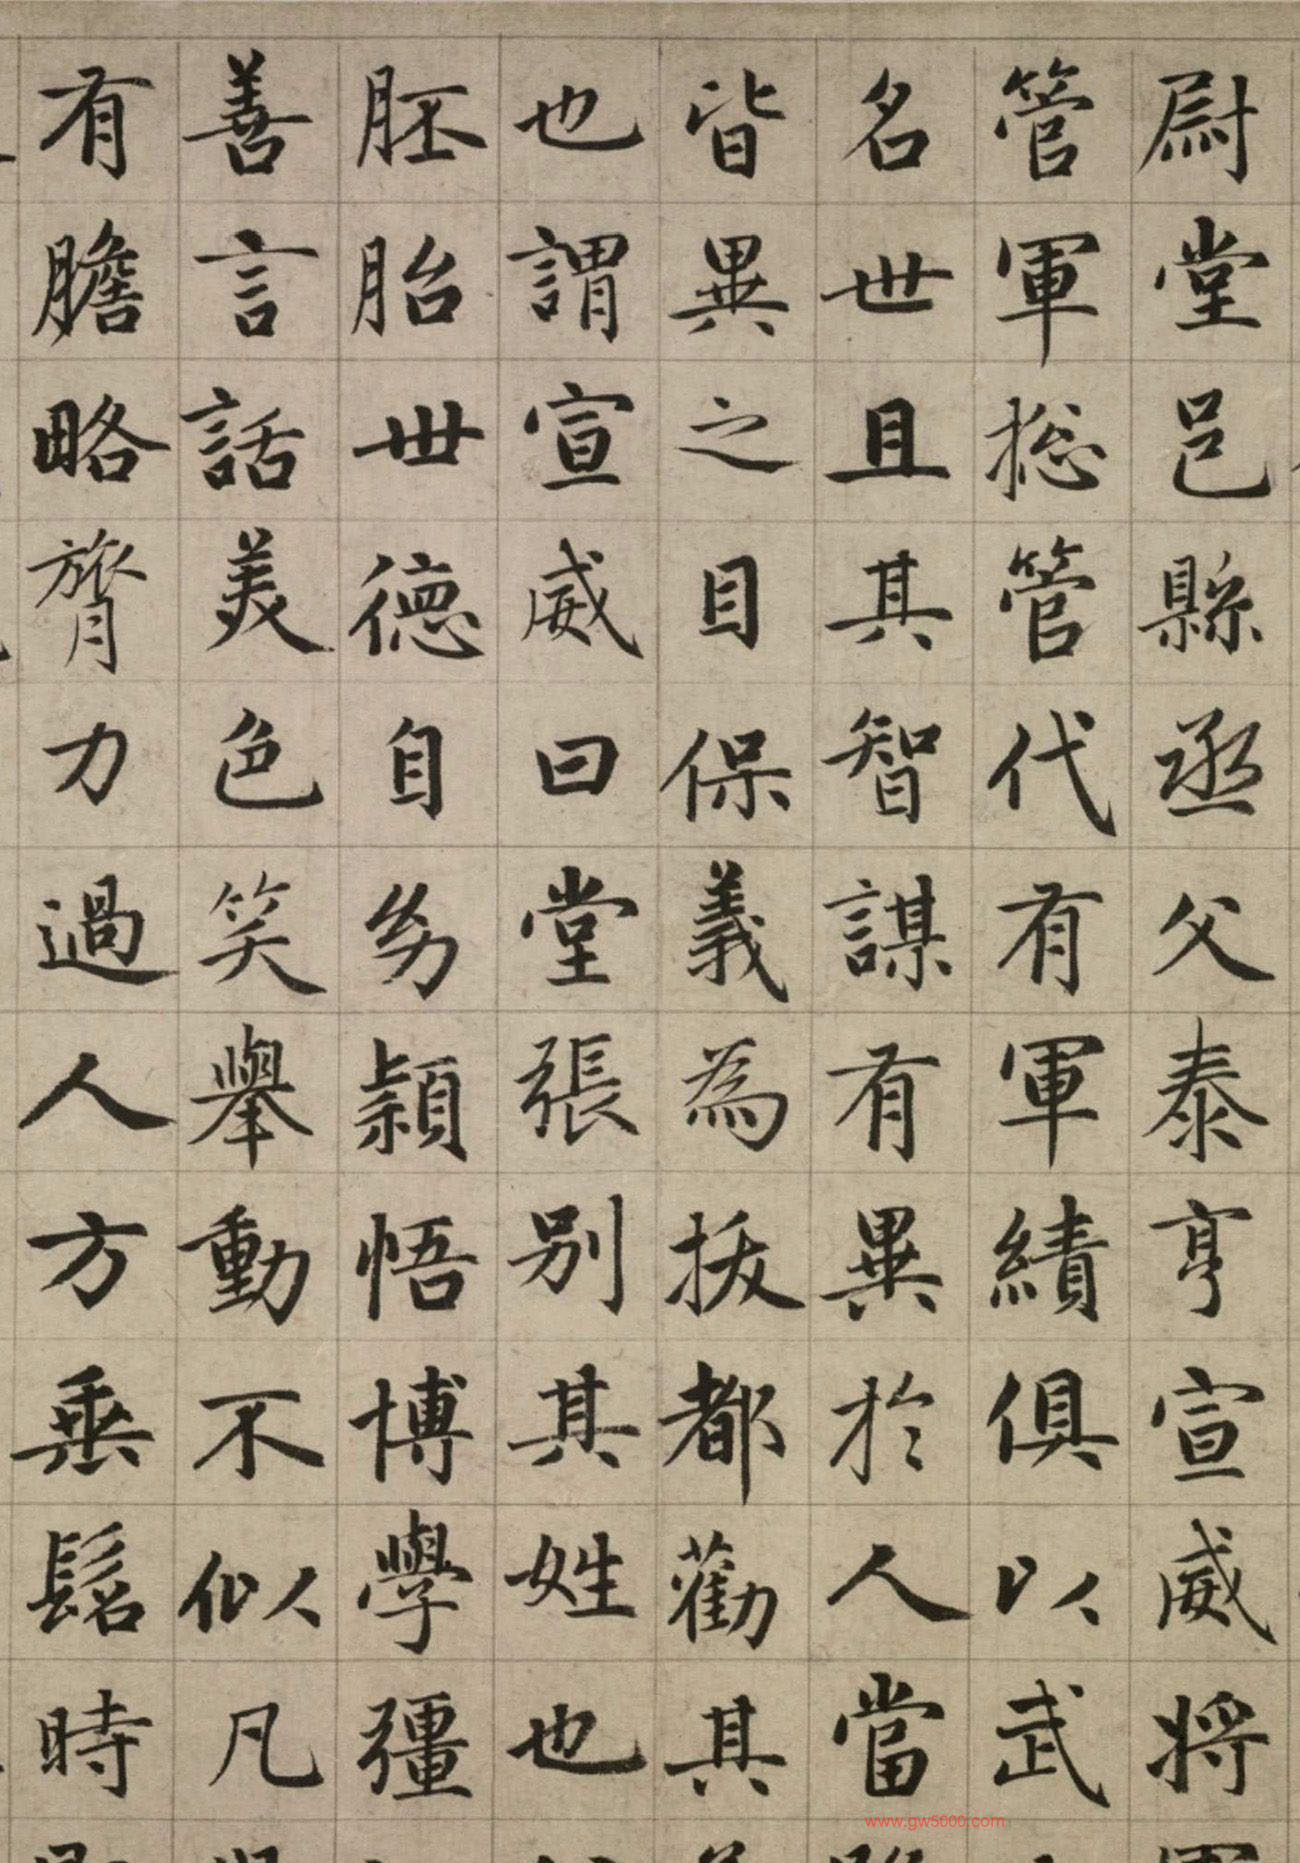 尉堂邑縣丞父泰亨宣威將
管軍総管代有軍績俱以武
名世且其智謀有異於人當
皆異之目保義為拔都勸其
也謂宣威曰堂張別其姓也
胚胎世德自幼穎悟博學彊
善言話美色笑舉動不似凡
有膽略膂力過人方垂髫時
www.gw5000.com